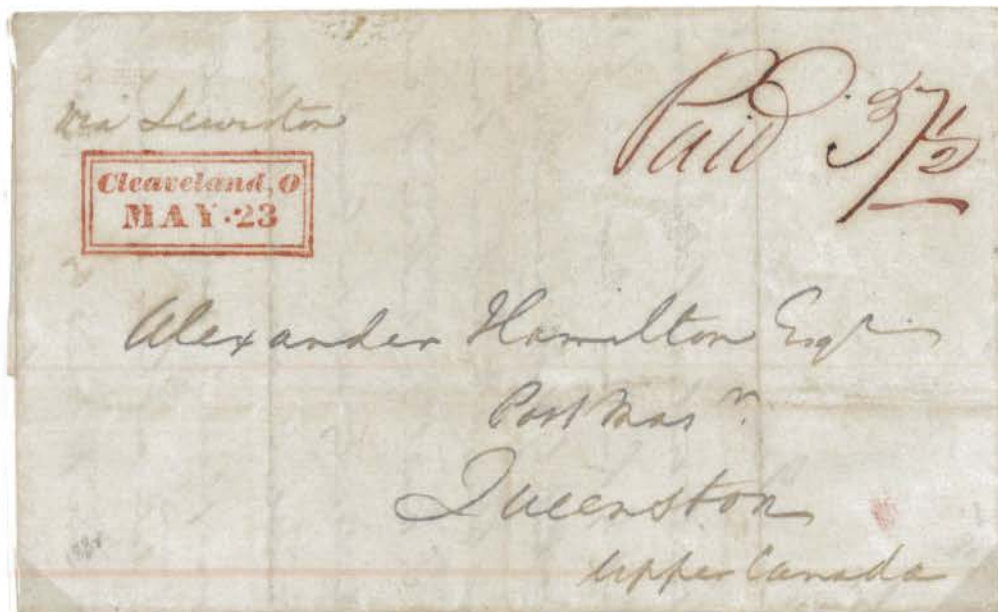 via Lewiston
Paid 37 1/2
Cleaveland, O
MAY·23
Alexander Hamilton Esqr
Post Masr
Queenston
Upper Canada